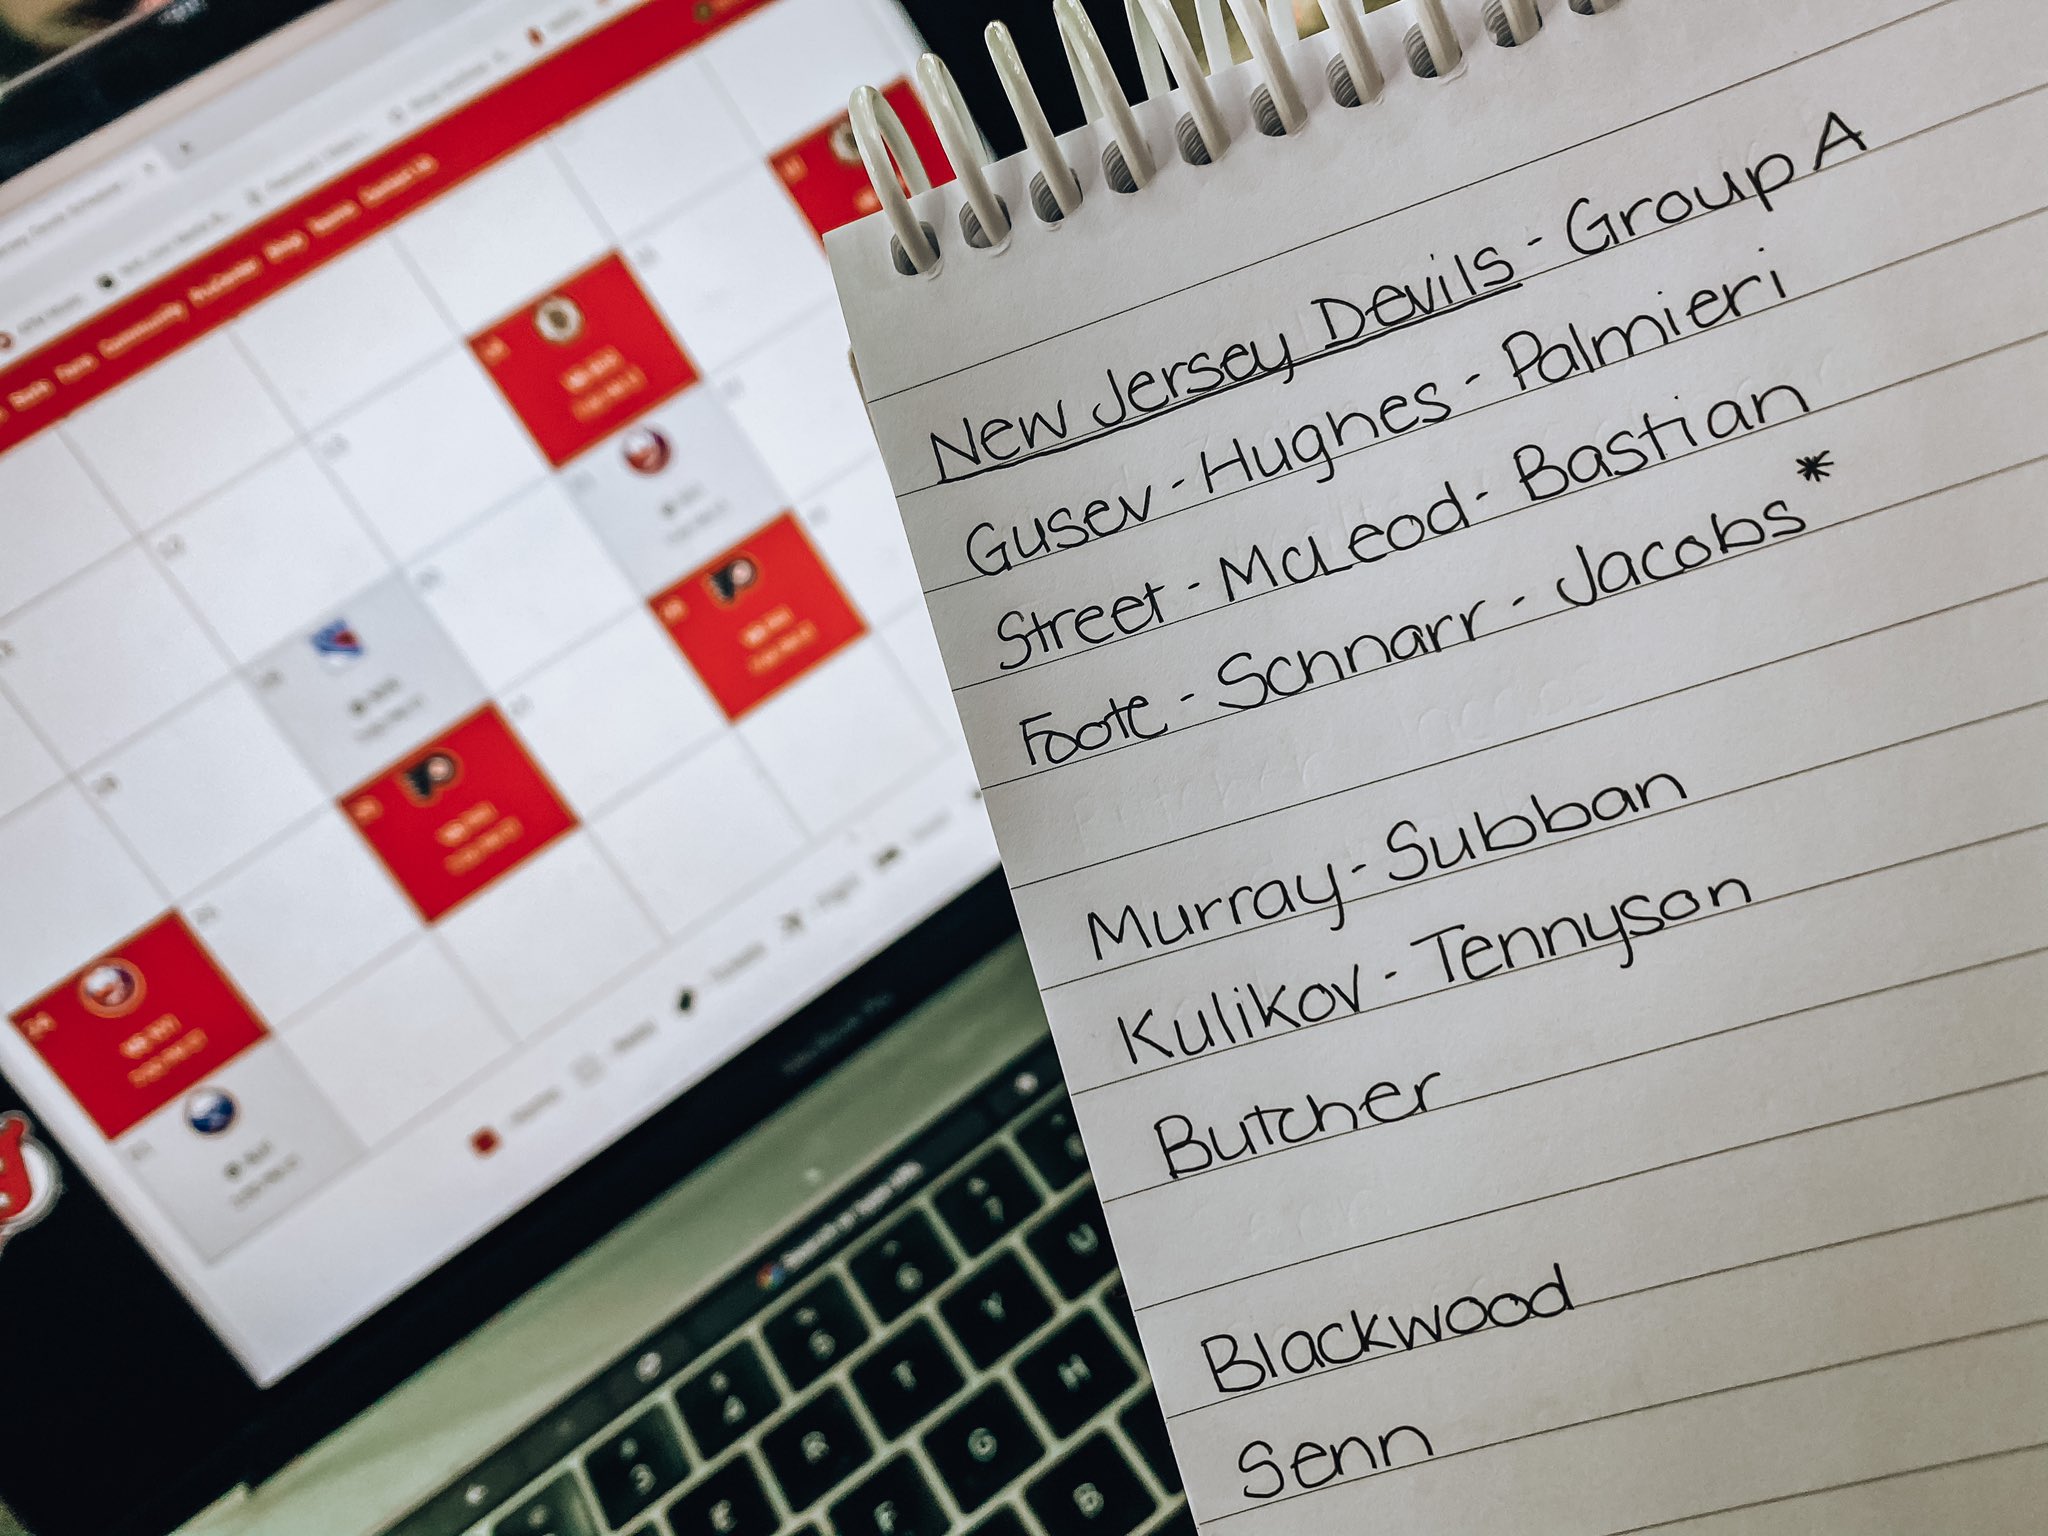 New Jersey Devils - Group A
Gusev - Hughes - Palmieri
Street - McLeod - Bastian
Foote - Schnarr - Jacobs*
Murray - Subban
Kulikov - Tennyson
Butcher
Blackwood
Senn
7
6
U
5
Y
4
T
H
3
R
G
E
F
B